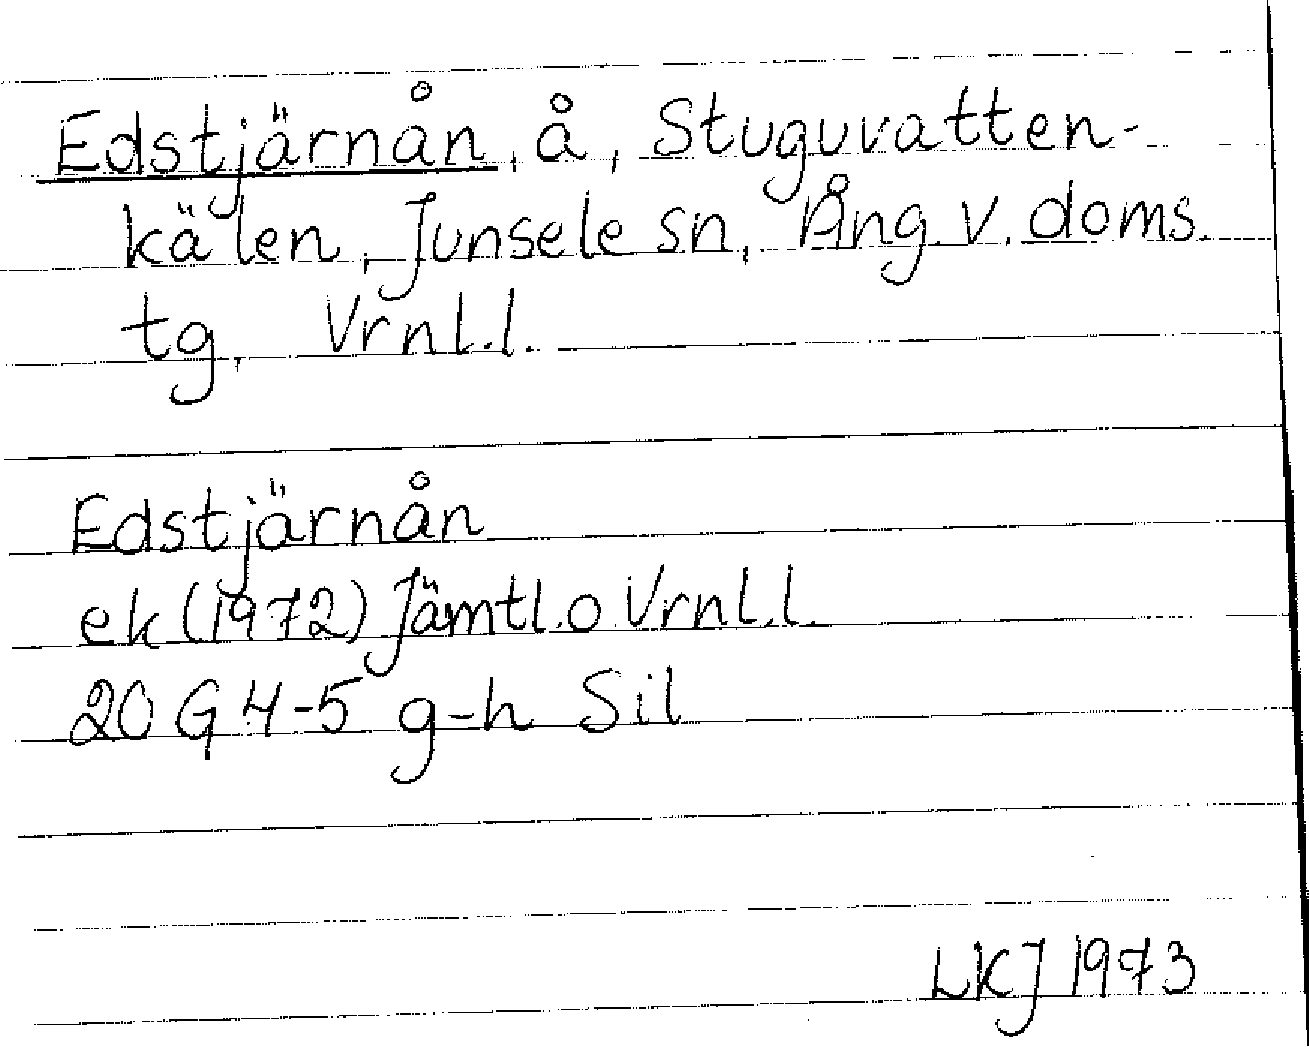 Edstjärnån, å, Stuguvatten-
kälen, Junsele sn, Ång. v. doms.
tg, Vrnl.l.
Edstjärnån
ek (1972) Jämtl. o Vrnl.l.
20 G 4-5 g-h Sil
LKJ 1973